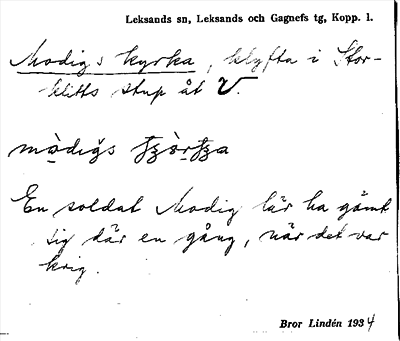 Leksands sn, Leksands och Gagnefs tg, Kopp. l.
Modigs kyrka, klyfta i Stor-
klitts stup åt V.
En soldat Modig lär ha gömt
sig där en gång, när det var
krig.
Bror Lindén 1934